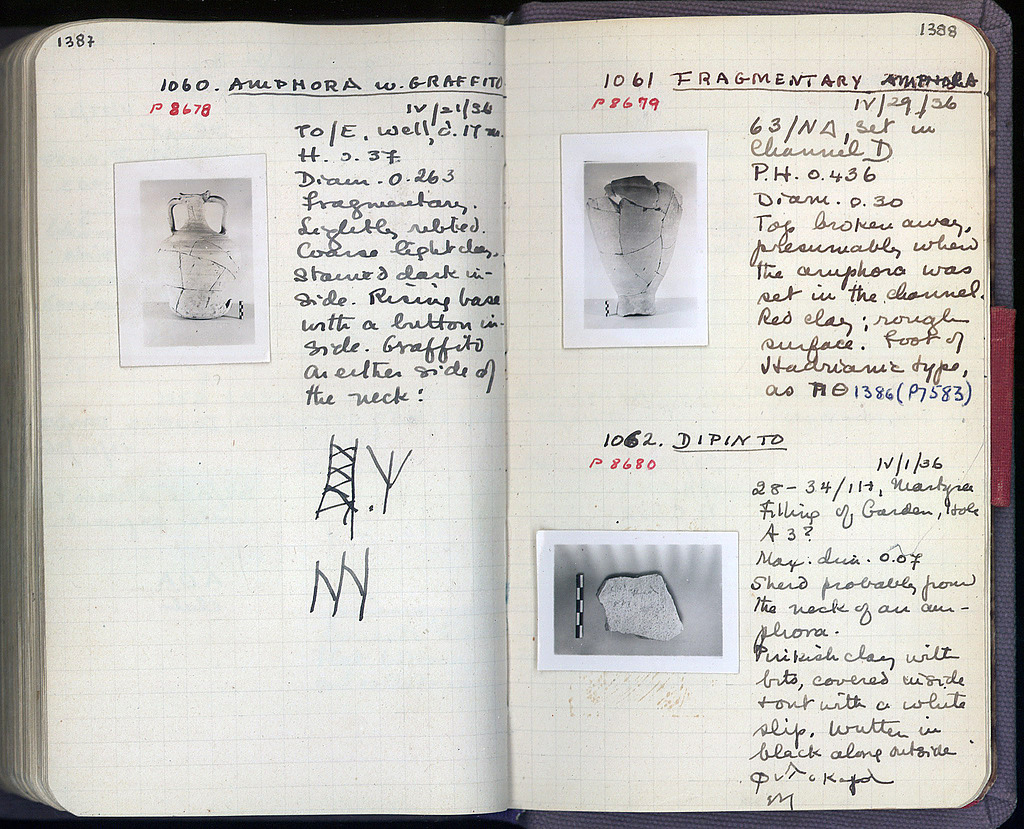 1387
1060. AMPHORA w. GRAFFITO
P 8678
IV/21/36
TO/E, well, d. 17 m.
H. 0.37
Diam. 0.263
Fragmentary.
Lightly ribbed.
Coarse light clay,
stained dark in-
side. Rising base
with a button in-
side. Graffito
on either side of
the neck:
1388
1061 FRAGMENTARY AMPHORA
P 8679
IV/29/36
63/ΝΔ, set in
Channel D
P.H. 0.436
Diam. 0.30
Top broken away,
presumably when
the amphora was
set in the channel.
Red clay; rough
surface. Foot of
Hadrianic type,
as ΠΘ 1386 (P7583)
1062. DIPINTO
P 8680
IV/1/36
28-34/ΙΗ,
Filling of Garden, Hole
A 3?
Max. dim. 0.07
Sherd probably from
the neck of an am-
phora.
Pinkish clay with
bits, covered inside
+ out with a white
slip. Written in
black along outside